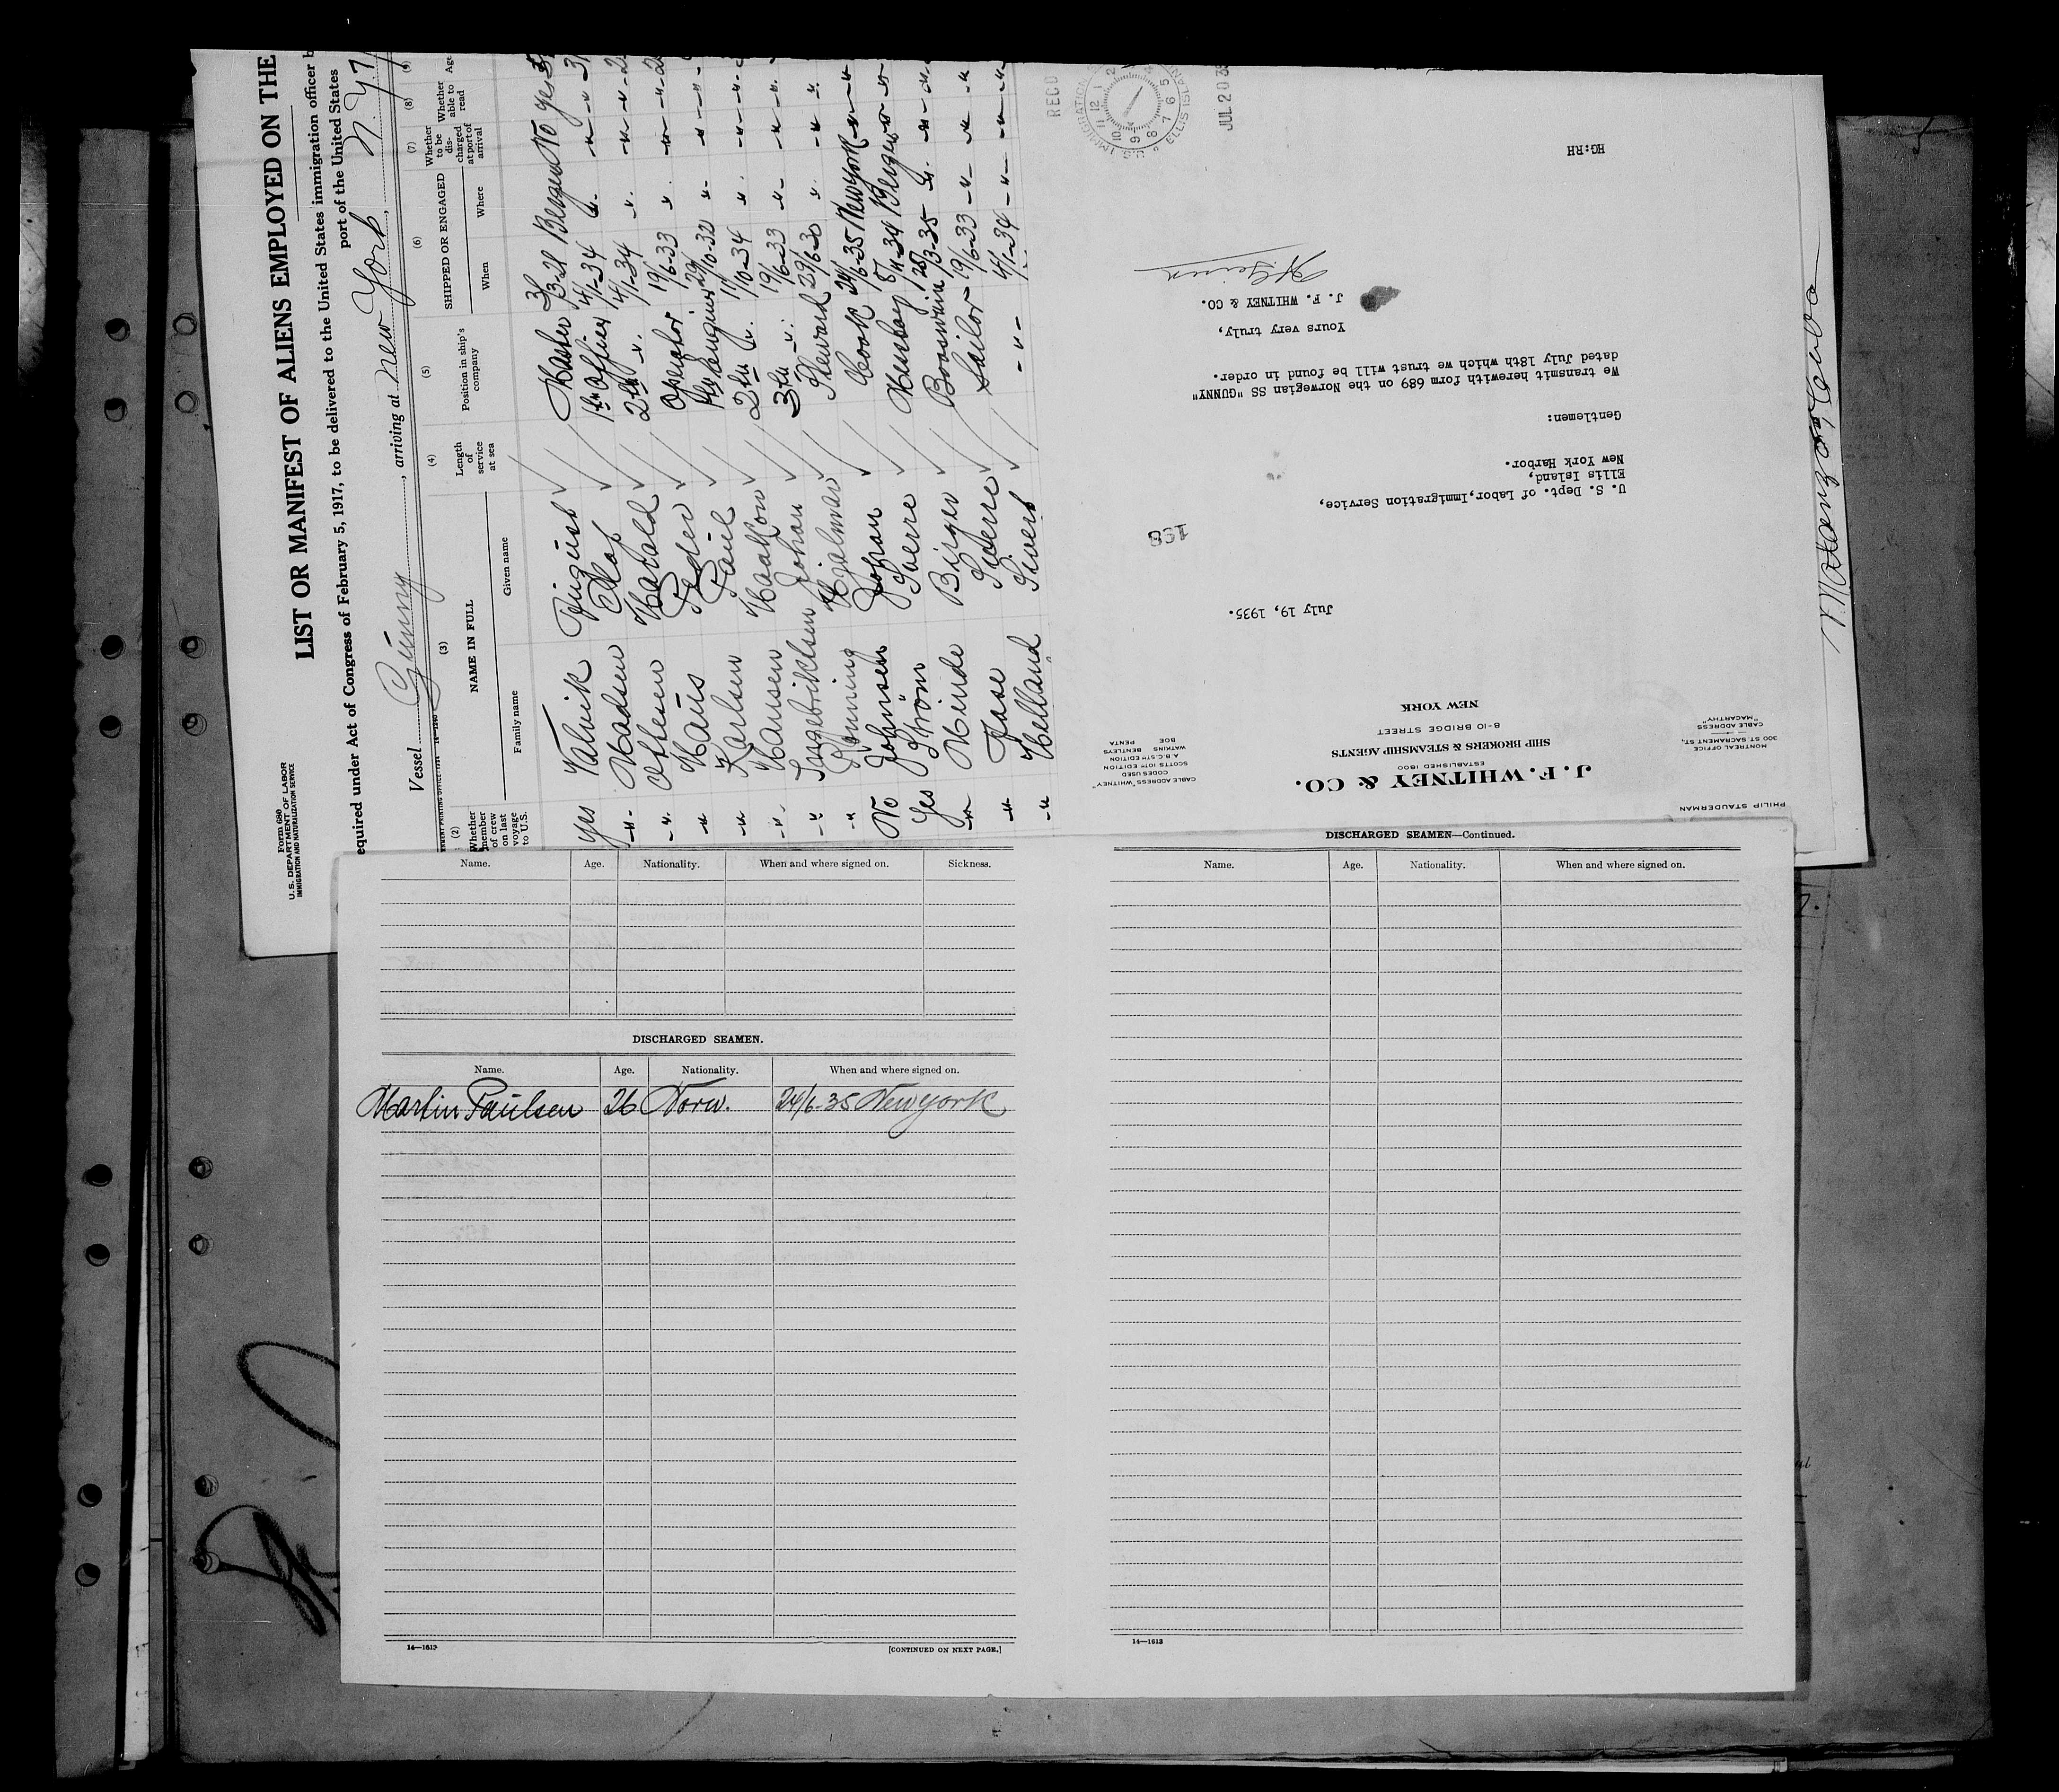 Form 680
U. S. DEPARTMENT OF LABOR
IMMIGRATION AND NATURALIZATION SERVICE
LIST OR MANIFEST OF ALIENS EMPLOYED ON THE
equired under Act of Congress of February 5, 1917, to be delivered to the United States immigration officer b
port of the United States
Vessel Gunny, arriving at New York, N.Y.
(2) (3) (4) (5) (6) (7) (8) (9)
Whether member of crew on last voyage to U.S.
NAME IN FULL
Family name Given name
Length of service at sea
Position in ship's company
SHIPPED OR ENGAGED
When Where
Whether to be discharged at port of arrival
Whether able to read
Age
yes Valvik August Master Bergen No yes
-"- Madsen Olaf 1ste Officer 4/1-34
-"- Harald 2den -"- 4/1-34
-"- Haus Peder Operator 19/6-33
-"- Karlsen Paul 29/10-32
-"- Hansen Haakon 2den 17/10-34
-"- Ingebriktsen Johan 3die -"- 19/6-33
" Hjalmar Steward 29/6-30
No Johnsen Johan Cook 24/6-35 New York
yes Strøm Sverre Messboy 8/11-34 Bergen
-"- Minde Birger Bootswain
" Aase Sverre Sailor 19/6-33
-"- Helland Sivert -"- 4/1-34
REC'D
U.S. IMMIGRATION
ELLIS ISLAND
JUL 20 35
PHILIP STAUDERMAN
J. F. WHITNEY & CO.
ESTABLISHED 1800
SHIP BROKERS & STEAMSHIP AGENTS
8-10 BRIDGE STREET
NEW YORK
MONTREAL OFFICE
300 ST. SACRAMENT ST.
CABLE ADDRESS
"MACARTHY"
CABLE ADDRESS "WHITNEY"
CODES USED
SCOTTS 10TH EDITION
A.B.C. 5TH EDITION
WATKINS BENTLEYS
BOE PENTA
July 19, 1935.
198
U. S. Dept. of Labor, Immigration Service,
Ellis Island,
New York Harbor.
Gentlemen:
We transmit herewith form 689 on the Norwegian SS "GUNNY"
dated July 18th which we trust will be found in order.
Yours very truly,
J. F. WHITNEY & CO.
HG:RH
Name. Age. Nationality. When and where signed on. Sickness.
DISCHARGED SEAMEN.
Name. Age. Nationality. When and where signed on.
Martin Paulsen 26 Norw. 24/6-35 New York
14—1613
[CONTINUED ON NEXT PAGE.]
DISCHARGED SEAMEN—Continued.
Name. Age. Nationality. When and where signed on.
14—1613